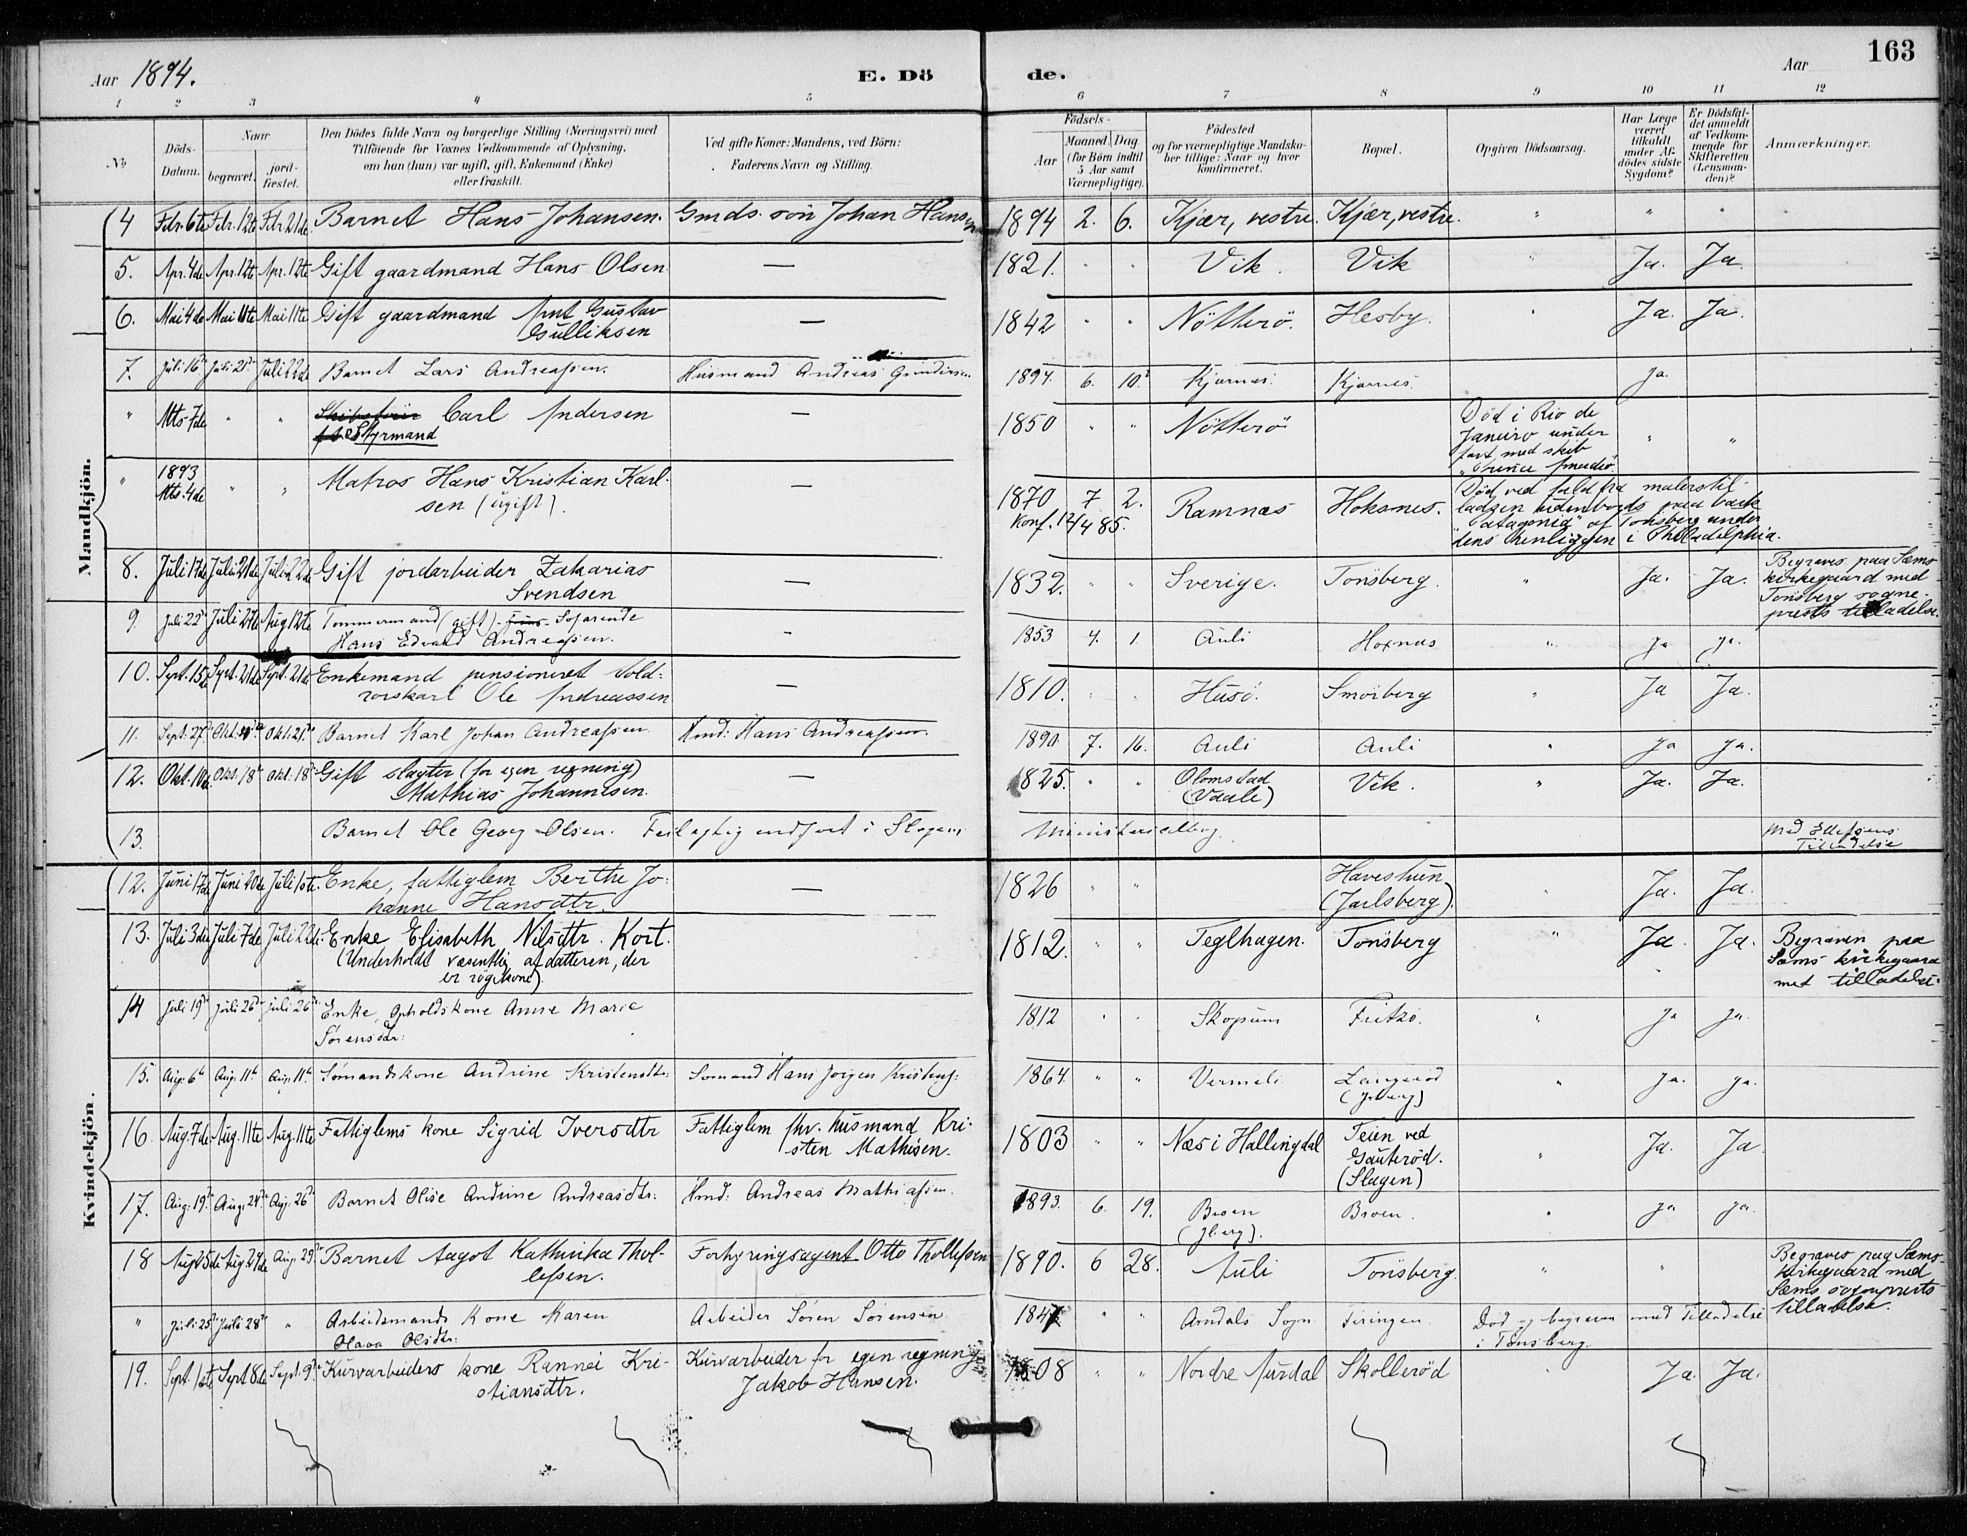 163
Aar 1894.
E. Dö
de.
Aar
1 2 3 4 5 6 7 8 9 10 11 12
No
Döds-Datum.
Naar
begravet.
jordfæstet.
Den Dödes fulde Navn og borgerlige Stilling (Næringsvei) med
Tilföiende for Voxnes Vedkommende af Oplysning,
om han (hun) var ugift, gift, Enkemand (Enke)
eller fraskilt.
Ved gifte Koner: Mandens, ved Börn:
Faderens Navn og Stilling.
Födsels-
Aar
Maaned. Dag
(for Börn indtil
5 Aar samt
Værnepligtige).
Födested
og for værnepligtige Mandska-
ber tillige: Naar og hvor
konfirmeret.
Bopæl.
Opgiven Dödsaarsag.
Har Læge
været
tilkaldt
under Af-
dödes sidste
Sygdom?
Er Dödsfal-
det anmeldt
af Vedkom-
mende for
Skifteretten
(Lensman-
den)?
Anmærkninger.
Mandkjön.
4 Febr. 6te Febr. 12te Febr. 21de Barnet Hans Johansen. Gmds. sön Johan Hansen 1894 2. 6. Kjær, vestre. Kjær, vestre. " " "
5. Apr. 4de Apr. 12te Apr. 12te Gift gaardmand Hans Olsen — 1821. " " Vik. Vik " Ja. Ja.
6. Mai 4de Mai 11te Mai 11te Gift gaardmand Arnt Gustav
Gulliksen — 1842 " " Nötterö. Hesby. " Ja. Ja.
7. Juli 16 Juli 21 Juli 22de Barnet Lars Andreassen. Husmand Andreas 1894. 6. 10. Kjærnes. Kjærnes. Ja.
" Mts 7de " " Carl Andersen
Styrmand — 1850 " " Nötterö Död i Rio de
Janeiro under
fart med skib
" "
" 1893
Mts. 4de " " Matros Hans Kristian Karl-
sen (ugift). — 1870 7 2. Ramnæs Hoksnes. Död ved fald fra malerstil-
Konf. 12/4 85. ladsen udenbords paa bark
"Patagonia" af Tönsberg under
dens henliggen i Philadelphia.
8. Juli 17de Juli 21de Juli 22de Gift jordarbeider Zakarias
Svendsen — 1832. " " Sverige. Tönsberg. " Ja. Ja. Begraves paa Sæms
kirkegaard med
Tönsberg sogne-
prests tilladelse.
9. Juli 22 Juli 27de Aug 12te Tömmermand (gift) Söfarende
Hans Edvard Andreassen. — 1853 4. 1. Auli Hoxnes " Ja Ja.
10. Sept. 15de Sept. 21de Sept. 21de Enkemand pensioneret told-
rorskarl Ole Andreassen — 1810. " " Husö. Smörberg " Ja Ja.
11. Sept. 27 Okt. Okt. 21 Barnet Karl Johan Andreassen Hmd: Hans Andreassen. 1890 7. 16. Auli Auli " Ja Ja.
12. Okt. 10de Okt. 18 Okt. 18 Gift slagter (for egen regning)
Mathias Johannesen. — 1825. " " Olomstad
(Vaale) Vik. " Ja. Ja.
13. Barnet Ole Georg Olsen. Feilagtig indfört i Slagens Ministerialbog.
Kvindekjön.
12. Juni 17de Juni 20de Juli 1ste. Enke, fattiglem Berthe Jo-
hanne Hansdtr. — 1826 " " Havestuen
(Jarlsberg). " Ja. Ja.
13. Juli 3die Juli 7de Juli 22de Enke Elisabeth Nilsdtr. Kort.
(Underholdt væsentlig af datteren, der
er røgtkone). 1812. " " Teglhagen. Tönsberg " Ja. Ja. Begraven paa
Sæms kirkegaard
med tilladelse.
14 Juli 19 Juli 26 Juli 26 Enke, opholdskone Anne Marie
Sörensdtr: 1812 " " Skopum Fritzö. " Ja Ja.
15. Aug. 6 Aug. 11 Aug. 11 Sömandskone Andrine Kristensdtr. Sömand Hans Jörgen Kristens: 1864. " " Vermeli Langeröd " Ja. Ja.
16. Aug. 7de Aug. 11te Aug. 11te Fattiglems kone Sigrid Iversdtr Fattiglem fhv. husmand Kri-
sten Mathisen. 1803 " " Næs i Hallingdal Teien ved
Gauteröd.
(Slagen) " Ja. Ja
17. Aug. 19 Aug. 24 Aug. 26 Barnet Olise Andrine Andreasdtr: Hmd: Andreas Mathiassen. 1893. 6. 19. Broen Broen. " Ja Ja.
18 Aug 25de Aug 29de Aug. 29 Barnet Aagot Kathinka Thol-
lefsen. Forhyringsagent Otto Thollefsen 1890. 6 28. Auli Tönsberg. " " Begraves paa Sæms
kirkegaard med
Sæms sogneprests
tilladelse.
" Juli 25 Juli 28 " Arbeidsmands Kone Karen
Olava Olsdtr: Arbeider Sören Sörensen " " Arndals Sogn Död og begraven med Tilladelse
i Tönsberg.
19. Sept. 1ste Sept 8de Sept. 9 Kurvarbeiders kone Rannei Kri-
stiansdtr. Kurvarbeider for egen regning
Jakob Hansen. 1808 " " Nordre Aurdal Skolleröd " Ja. Ja.